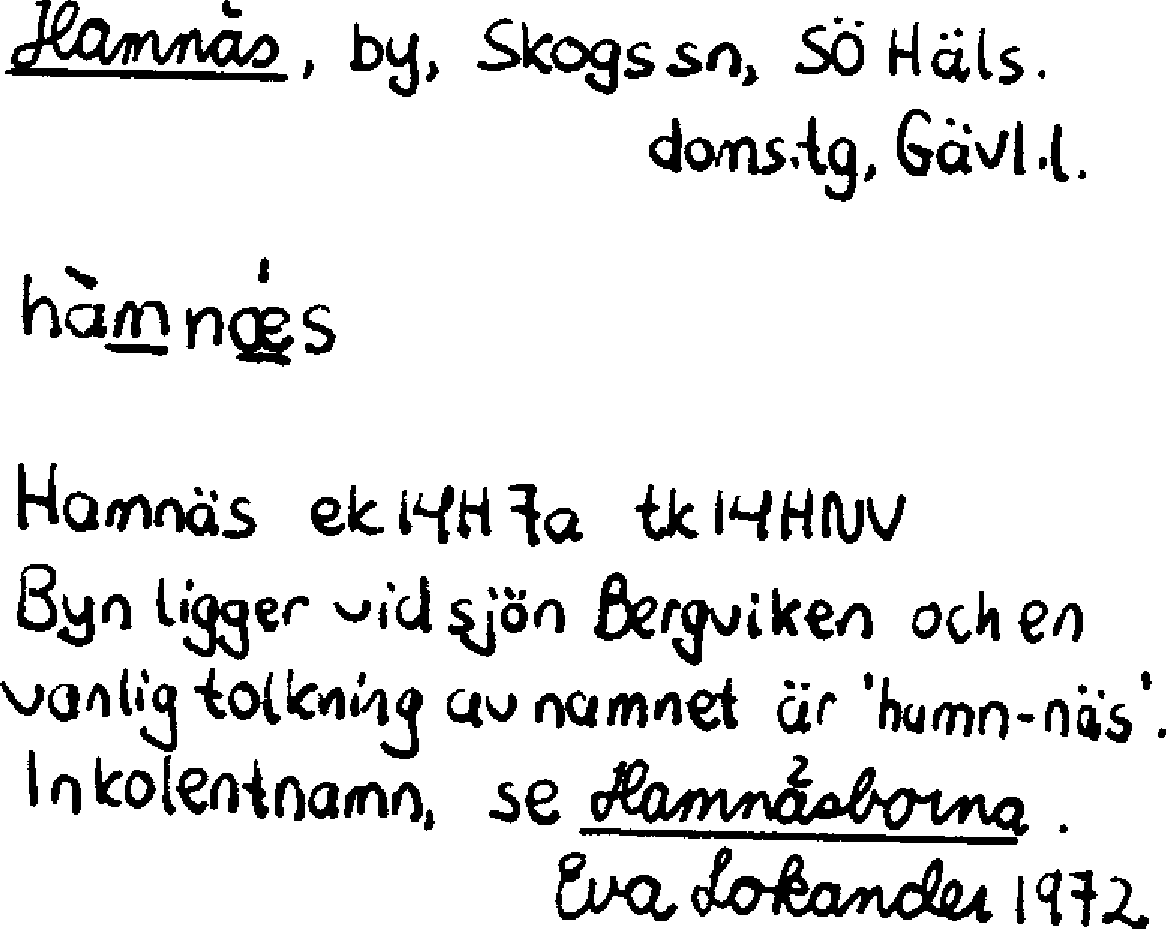 Hamnäs, by, Skogs sn, SÖ Häls.
doms.tg, Gävl.l.
hàmnǽs
Hamnäs ek 14H 7a tk 14HNV
Byn ligger vid sjön Bergviken och en
vanlig tolkning av namnet är 'hamn-näs'.
Inkolentnamn, se Hamnäsborna.
Eva Lokander 1972